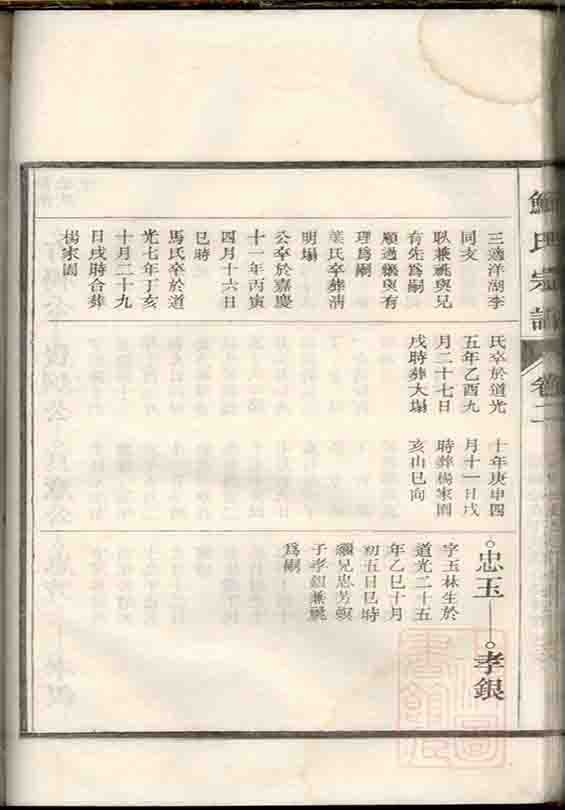 三適洋湖李
同支
耿兼祧與兄
有先爲嗣
順過繼與有
理爲嗣
葉氏卒葬清
明塌
公卒於嘉慶
十一年丙寅
四月十六日
巳時
馬氏卒於道
光七年丁亥
十月二十九
日戌時合葬
楊家園
氏卒於道光
五年乙酉九
月二十七日
戌時葬大塌
十年庚申四
月十一日戌
時葬楊家園
亥山巳向
忠玉
孝銀
字玉林生於
道光二十五
年乙巳十月
初五日巳時
繼兄忠芳嗣
子孝銀兼祧
爲嗣
氏宗譜
卷二